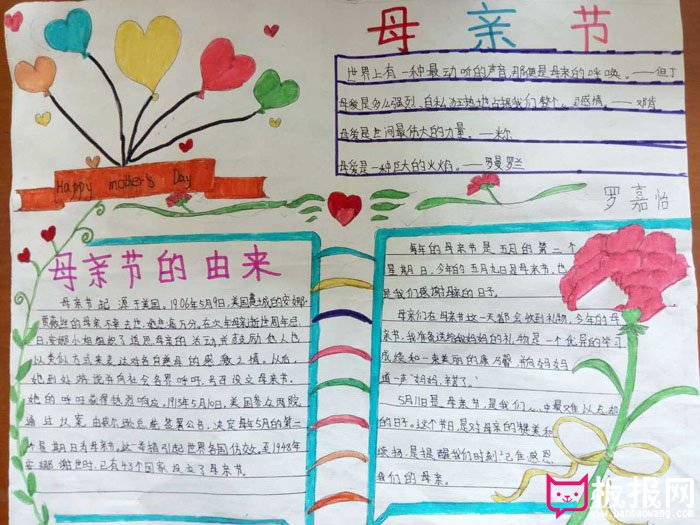 母亲节
世界上有一种最动听的声音,那便是母亲的呼唤。——但丁
母爱是多么强烈、自私、狂热地占据我们整个心灵感情。——邓肯
母爱是世间最伟大的力量。——米尔
母爱是一种巨大的火焰。——罗曼罗兰
Happy mother's Day
罗嘉怡
母亲节的由来
母亲节起源于美国。1906年5月9日,美国费城的安娜·
贾薇丝的母亲不幸去世,她悲痛万分。在次年母亲逝世周年忌
日,安娜小姐组织了追思母亲的活动,并鼓励他人也
以类似方式来表达对各自慈母的感激之情。从后,
她到处游说并向社会各界呼吁,号召设立母亲节。
她的呼吁获得热烈响应。1913年5月10日,美国参众两院
通过议案,由威尔逊总统签署公告,决定每年5月的第二
个星期日为母亲节。这一举措引起世界各国仿效,至1948年
安娜谢世时,已有43个国家设立了母亲节。
每年的母亲节是五月的第二个
星期日,今年的五月九日是母亲节,也
是我们感谢母亲的日子。
母亲们在母亲节这一天都会收到礼物,今年的母
亲节,我准备送给妈妈的礼物是一个优异的学习
成绩和一束美丽的康乃馨,并向妈妈
道一声"妈妈,辛苦了。"
5月11日是母亲节,是我们心中最难以忘却
的日子。这个节日是对母亲的赞美和
颂扬,是提醒我们时刻记住感恩
我们的母亲。
板报网
www.banbaowang.com